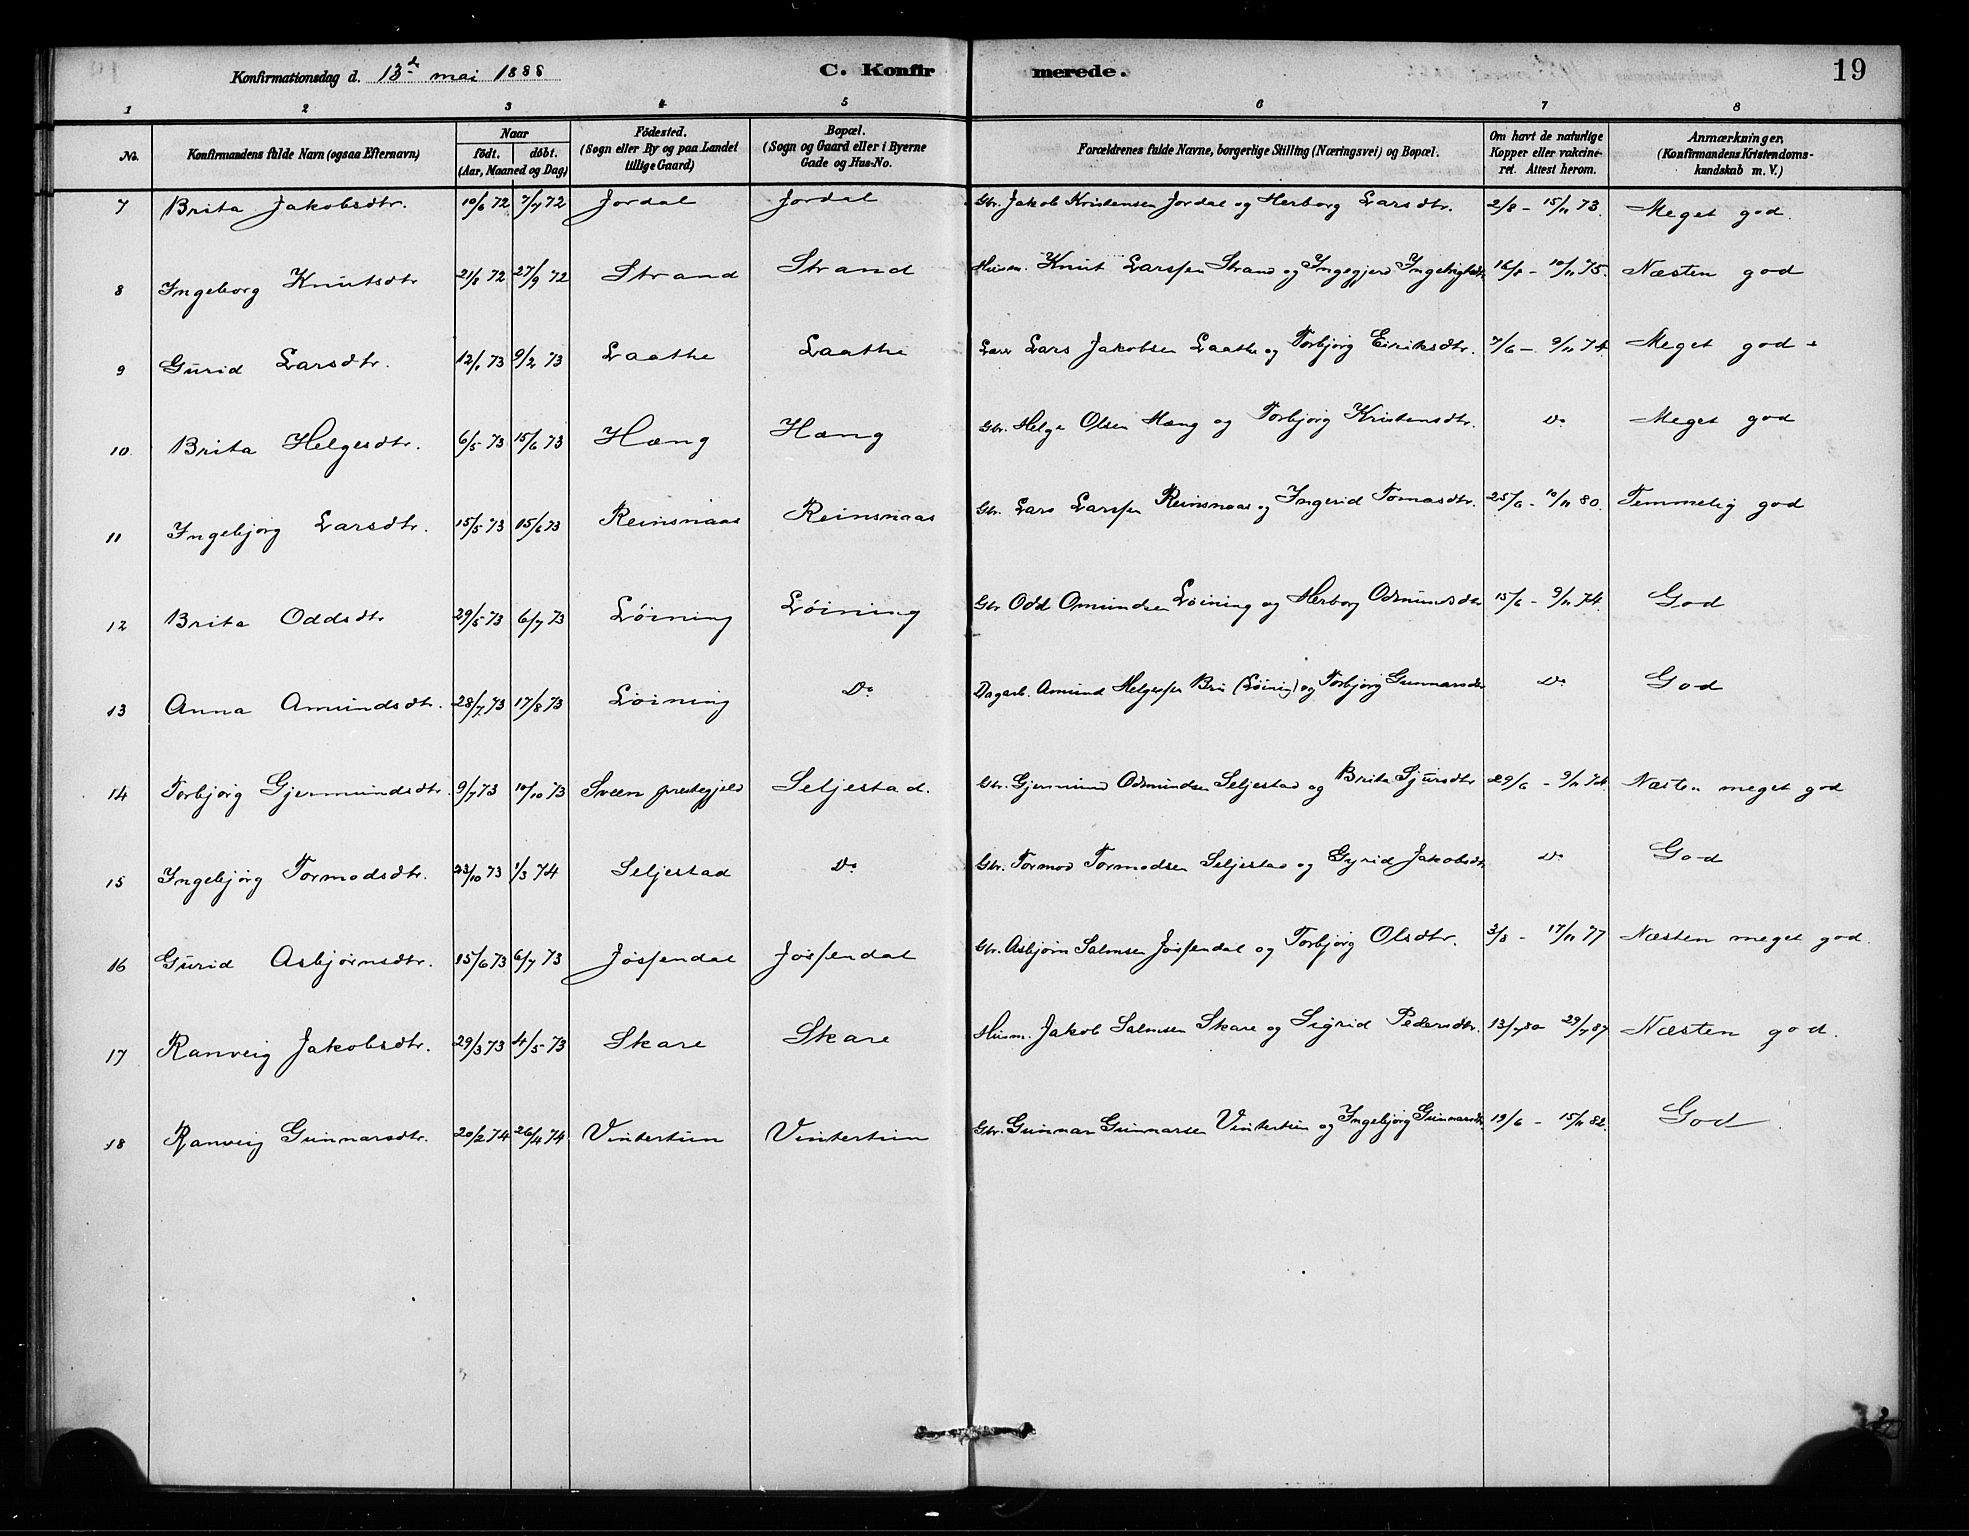 Konfirmationsdag d. 13de mai 1888 C. Konfirmerede. 19
1 2 3 4 5 6 7 8
No. Konfirmandens fulde Navn (ogsaa Efternavn) Naar født. døbt. (Aar, Maaned og Dag) Fødested. (Sogn eller By og paa Landet tillige Gaard) Bopæl. (Sogn og Gaard eller i Byerne Gade og Hus-No. Forældrenes fulde Navne, borgerlige Stilling (Næringsvei) og Bopæl. Om havt de naturlige Kopper eller vakcineret. Attest herom. Anmærkninger, (Konfirmandens Kristendomskundskab m. V.)
7 Brita Jakobsdtr. 10/6 72 7/7 72 Jordal Jordal Gbr. Jakob Kristensen Jordal og Herborg Larsdtr. 2/8 - 15/11 73. Meget god.
8 Ingeborg Knutsdtr 21/8 72 27/9 72 Strand Strand Husm. Knut Larssen Strand og Ingegjerd Ingebrigtsdtr 16/8 - 10/11 75. Næsten god
9 Gurid Larsdtr. 12/1 73 9/2 73 Laathe Laathe Lars Jakobsen Laathe og Torbjørg Eiriksdtr. 7/6 - 9/11 74. Meget god
10 Brita Helgesdtr. 6/5 73 15/6 73 Hæng Hæng Gbr. Helge Olsen Hæng og Torbjørg Kristensdtr. Do Meget god
11 Ingebjørg Larsdtr. 15/5 73 15/6 73 Reinsnaas Reinsnaas Gbr. Lars Larssen Reinsnaas og Ingerid Tomasdtr. 25/6 - 10/11 80. Temmelig god
12 Brita Oddsdtr 29/5 73 6/7 73 Løining Løining Gbr Odd Omundsen Løining og Herborg Odmundsdtr 15/6 - 9/11 74. God
13 Anna Amundsdtr. 28/7 73 17/8 73 Løining Do Dagarb. Amund Helgessen Bru (Løinig) og Torbjørg Gunnarsdtr Do God
14 Torbjørg Gjermundsdtr. 9/7 73 10/10 73 Sveen prestegjeld Seljestad. Gbr. Gjermund Odmundsen Seljestad og Brita Sjursdtr 29/6 - 9/11 74. Næsten meget god
15 Ingebjørg Tormodsdtr. 23/10 73 1/3 74 Seljestad Do Gbr. Tormod Tormodsen Seljestad og Gyrid Jakobsdtr Do God
16 Gurid Asbjørnsdtr. 15/6 73 6/7 73 Jøssendal Jøssendal Gbr. Asbjørn Salmsen Jøssendal og Torbjørg Olsdtr. 3/8 - 17/11 77 Næsten meget god.
17 Ranveig Jakobsdtr. 29/3 73 4/5 73 Skare Skare Husm. Jakob Salmsen Skare og Sigrid Pedersdtr. 13/7 80 29/7 87 Næsten god.
18 Ranveig Gunnarsdtr. 20/2 74 26/4 74 Vintertun Vintertun Gbr. Gunnar Gunnarsen Vintertun og Ingebjørg Gunnarsdtr. 19/6 - 15/11 82. God.